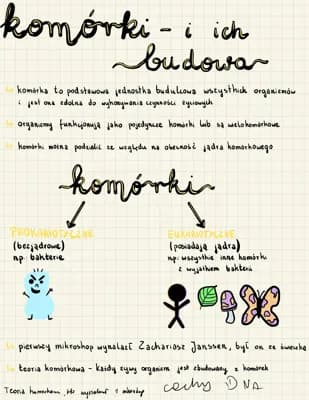 komórki - i ich
budowa
komórka to podstawowa jednostka budulcowa wszystkich organizmów
i jest ona zdolna do wykonywania czynności życiowych
organizmy funkcjonują jako pojedyncze komórki lub są wielokomórkowe
komórki można podzielić ze względu na obecność jądra komórkowego
komórki
PROKARIOTYCZNE
(bezjądrowe)
np. bakterie
EUKARIOTYCZNE
(posiadają jądra)
np. wszystkie inne komórki
z wyjątkiem bakterii
pierwszy mikroskop wynalazł Zachariasz Janssen, był on ze
teoria komórkowa - każdy żywy organizm jest zbudowany z komórek
Teoria
cechy DNA